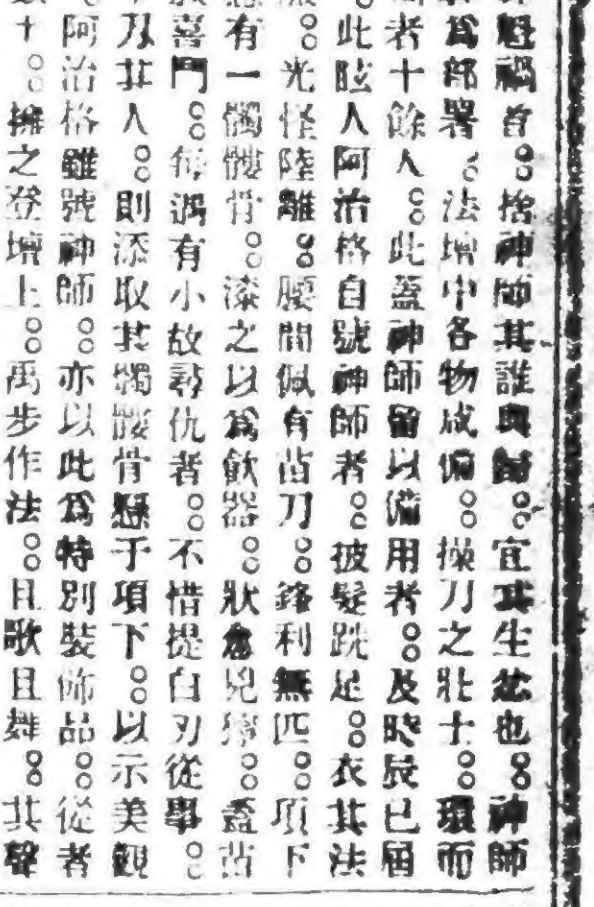 魁禍首。捨神師其誰與歸。宜其生忿也。神師
爲部署。法壇中各物咸備。操刀之壯士。環而
者十餘人。此蓋神師留以備用者。及時辰已屆
。此眩人阿治格自號神師者。披髮跣足。衣其法
。光怪陸離。腰間佩有苗刀。鋒利無匹。項下
有一髑髏骨。漆之以爲飲器。狀愈兇獰。蓋苗
喜鬥。每遇有小故尋仇者。不惜提白刃從事。
刄其人。則添取其髑髏骨懸于項下。以示美觀
。阿治格雖號神師。亦以此爲特別裝飾品。從者
十。擁之登壇上。禹步作法。且歌且舞。其聲